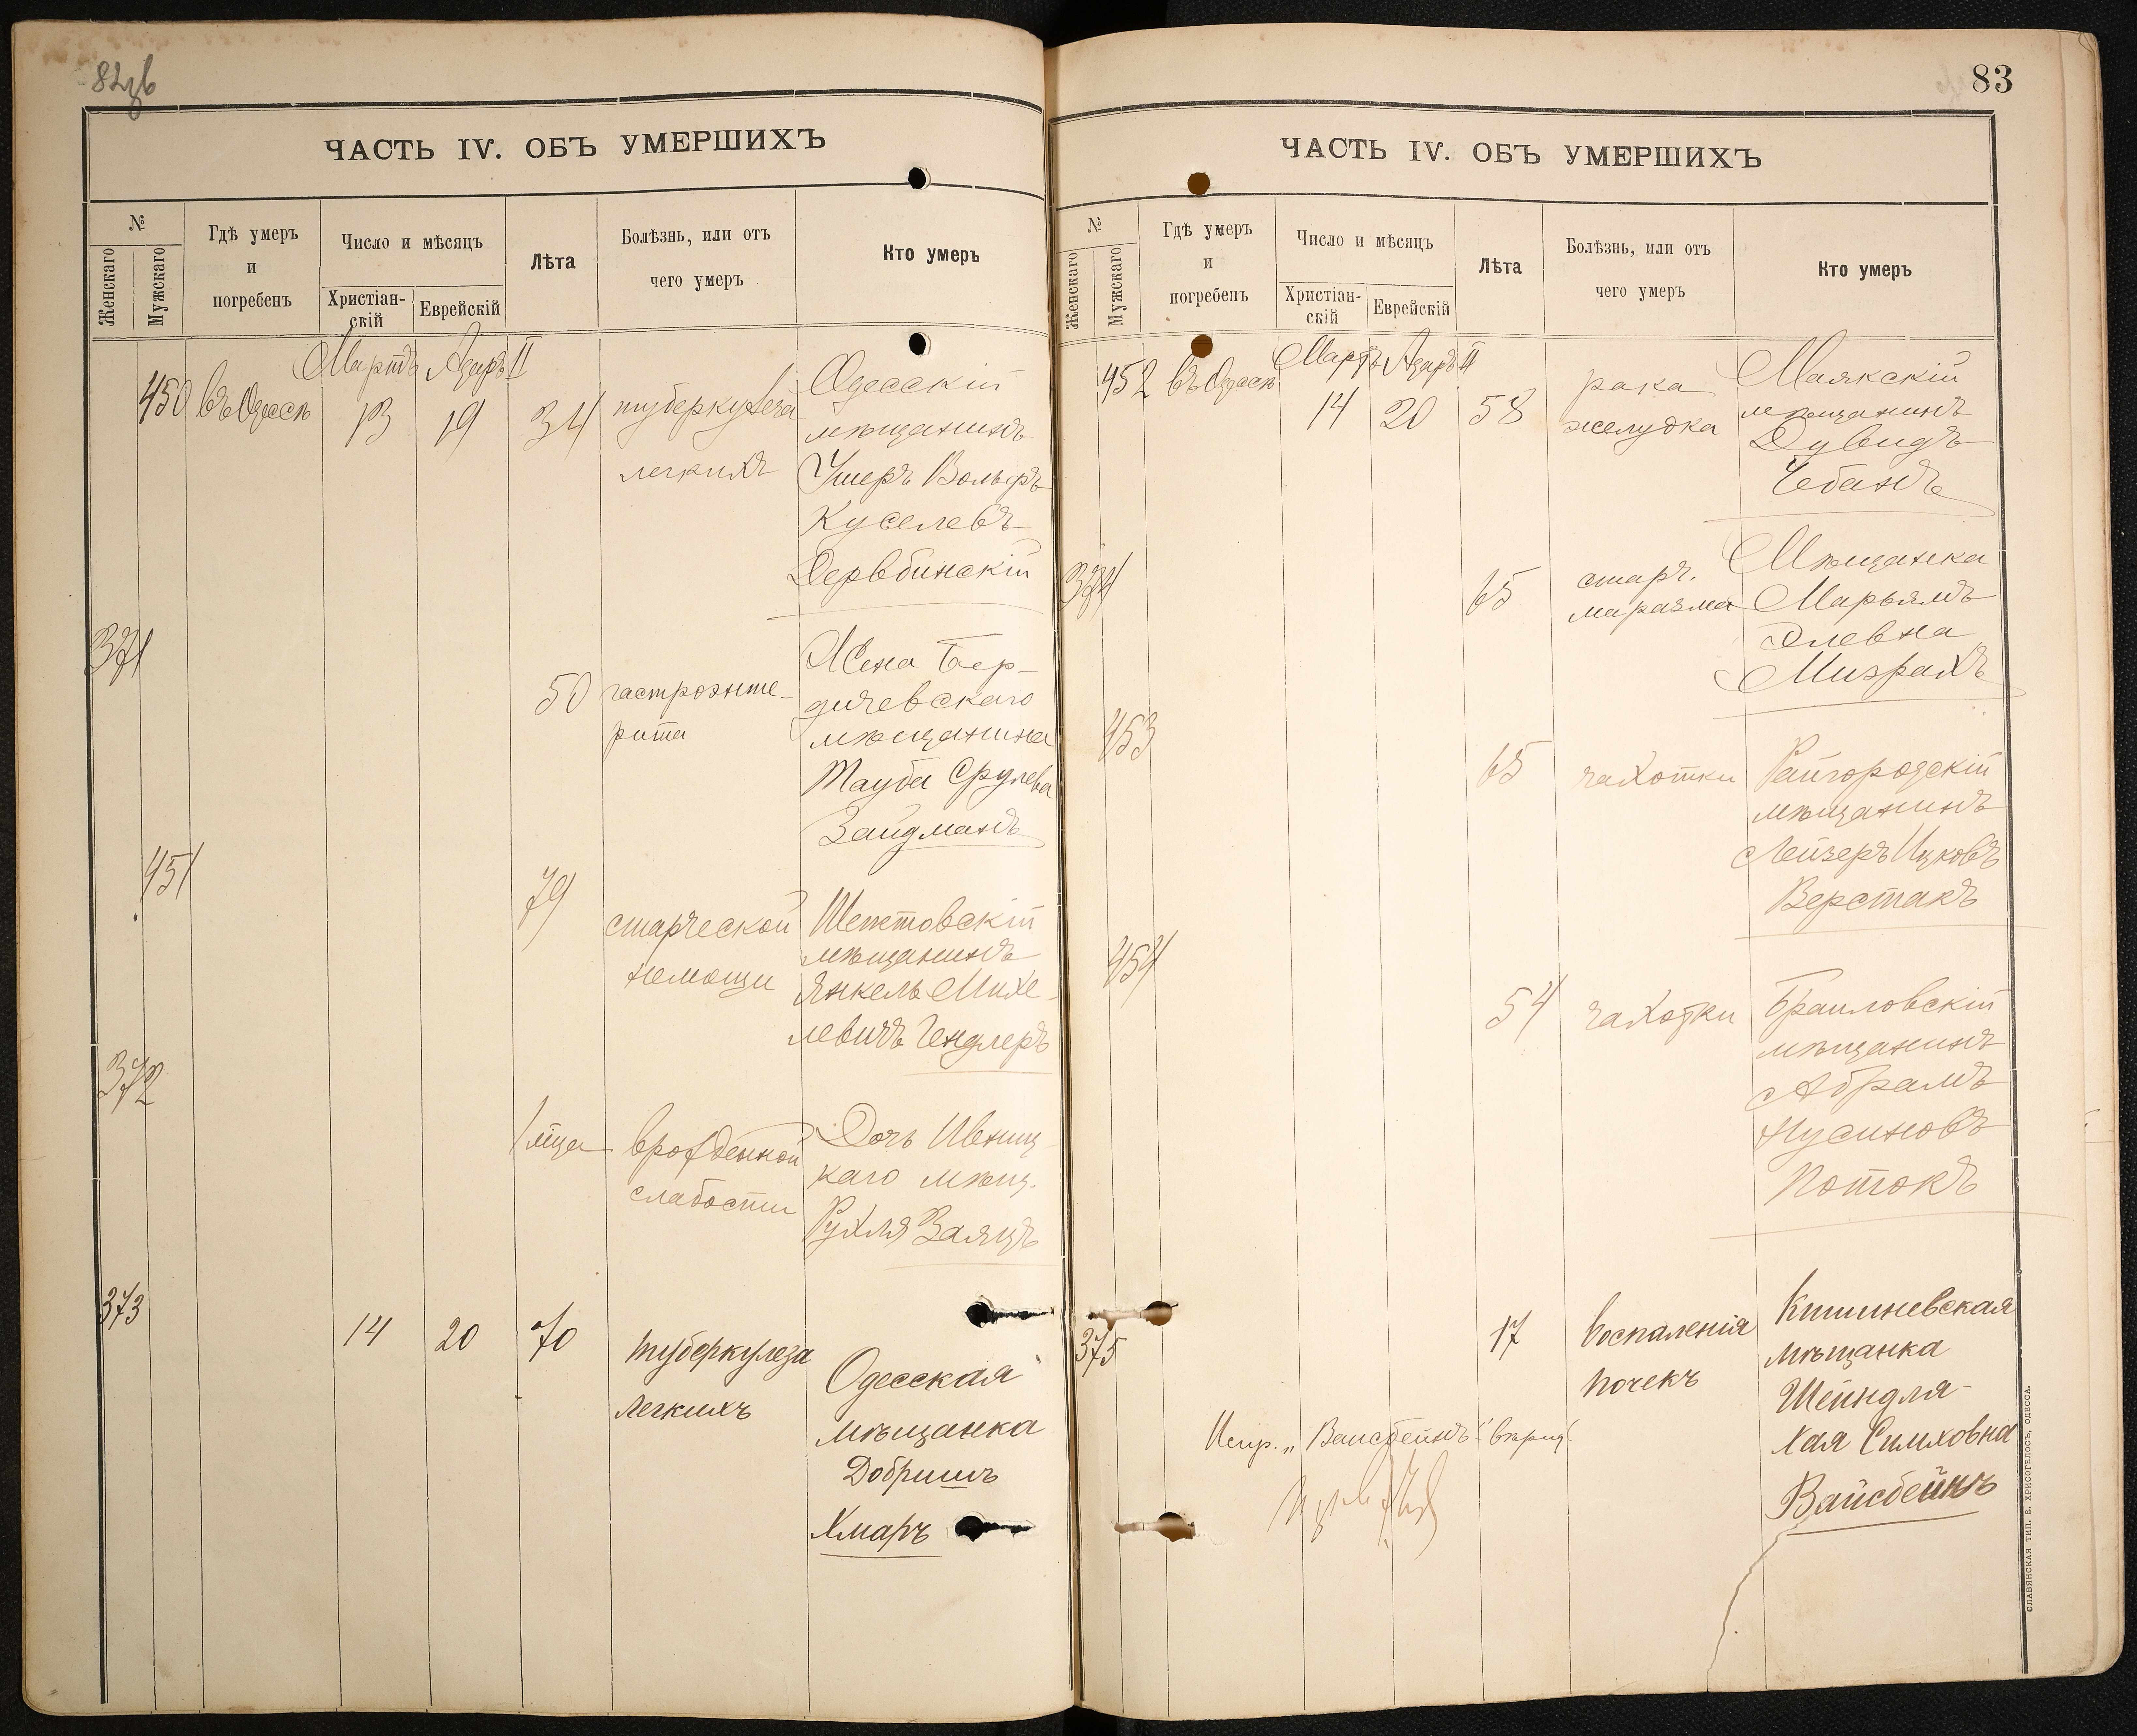 82об
ЧАСТЬ IV. ОБЪ УМЕРШИХЪ
№
Женскаго
Мужскаго
Гдѣ умеръ
и
погребенъ
Число и мѣсяцъ
Христіан-
скій
Еврейскій
Лѣта
Болѣзнь, или отъ
чего умеръ
Кто умеръ
Мартъ Адаръ II
450 въ Одессѣ 13 19 34 туберкулеза
легкихъ
Одесскій
мѣщанинъ
Ушеръ Вольфъ
Куселевъ
Дервбинскій
371
50 гастроэнте-
рита
Жена Бер-
дичевскаго
мѣщанина
Тауба Срулева
Зайдманъ
451
79
старческой
немощи
Шепетовскій
мѣщанинъ
Янкель Михе-
левичъ Гендлеръ
372
1 мца врожденной
слабости
Дочь Ивниц
каго мѣщ.
Рухля Заяцъ
373
14 20 70
туберкулеза
легкихъ
Одесская
мѣщанка
Добришъ
Хмаръ
83
ЧАСТЬ IV. ОБЪ УМЕРШИХЪ
№
Женскаго
Мужскаго
Гдѣ умеръ
и
погребенъ
Число и мѣсяцъ
Христіан-
скій
Еврейскій
Лѣта
Болѣзнь, или отъ
чего умеръ
Кто умеръ
Мартъ Адаръ II
452 въ Одессѣ 14 20 58
рака
желудка
Маякскій
мѣщанинъ
Дувидъ
Чебанъ
374
65
старч.
маразма
Мѣщанка
Марьямъ
Элевна
Мизрахъ
453
65 чахотки
Райгородскій
мѣщанинъ
Лейзеръ Ицковъ
Верстакъ
454
54 чахотки
Браиловскій
мѣщанинъ
Абрамъ
Нусиновъ
Потокъ
375
17
воспаленія
почекъ
Кишиневская
мѣщанка
Шейндля-
Хая Симховна
Вайсбейнъ
Испр. „Вайсбейнъ“
СЛАВЯНСКАЯ ТИП. Е. ХРИСОГЕЛОСЪ, ОДЕССА.